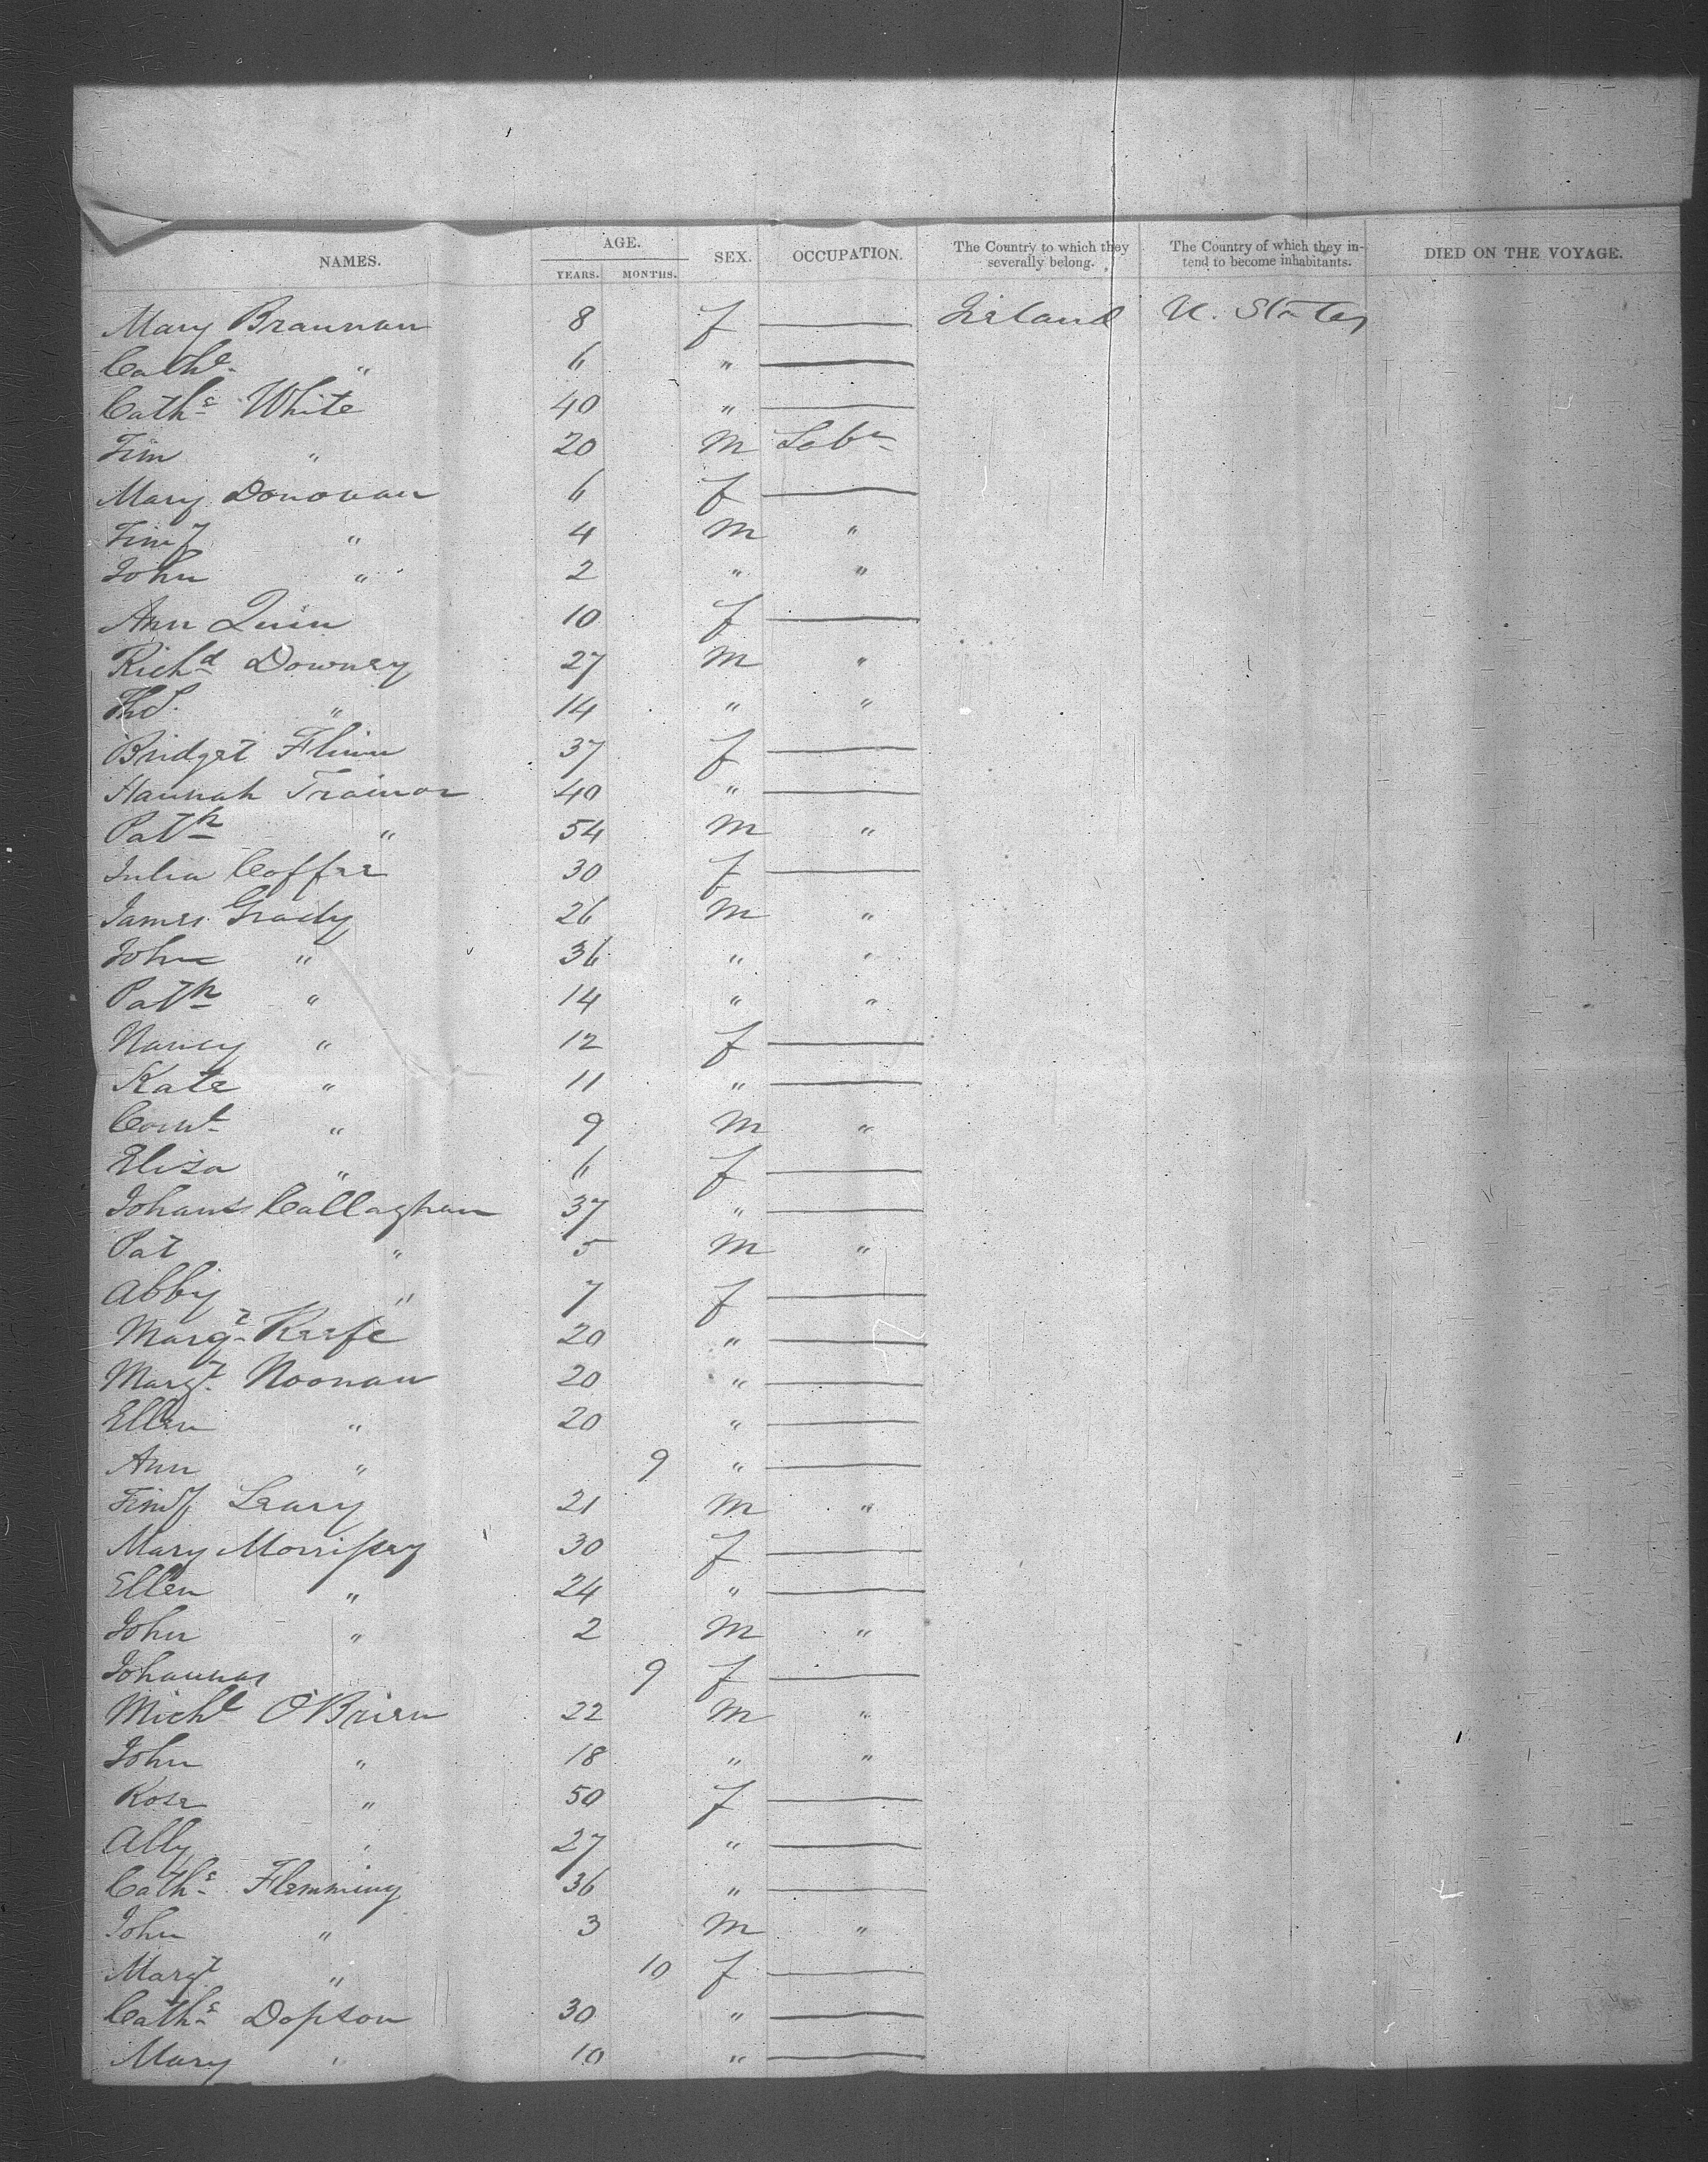 NAMES. AGE. YEARS. MONTHS. SEX. OCCUPATION. The Country to which they severally belong. The Country of which they intend to become inhabitants. DIED ON THE VOYAGE.
Mary Brannan 8 f — Ireland U. States
Cathe " 6 " —
Cathe White 40 " —
Tim " 20 M Labr
Mary Donovan 6 f —
Timy " 4 M "
John " 2 " "
Ann Quin 10 f —
Richd Downey 27 M "
Ths. " 14 " "
Bridget Flinn 37 f —
Hannah Trainor 40 " —
Patk " 54 M "
Julia Coffee 30 f —
James Grady 26 M "
John " 36 " "
Patk " 14 " "
Nancy " 12 f —
Kate " 11 " —
Cornl " 9 M "
Eliza " 6 f —
Johans Callaghan 37 " —
Pat " 5 M "
Abby " 7 f —
Margt Keefe 20 " —
Margt Noonan 20 " —
Ellen " 20 " —
Ann " 9 " —
Timy Leary 21 M "
Mary Morrissey 30 f —
Ellen " 24 " —
John " 2 M "
Johannas 9 f —
Michl O'Brien 22 M "
John " 18 " "
Rose " 50 f —
Ally " 27 " —
Cathe Flemming 36 " —
John " 3 M "
Margt " 10 f —
Cathe Dopson 30 " —
Mary " 10 " —